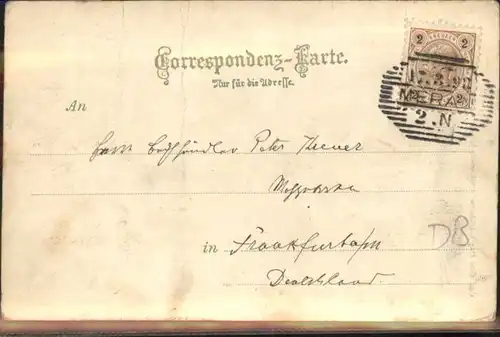 2 KREUZER 2
Correspondenz-Karte.
Nur für die Adresse.
MERAN
2.N
An
Herrn Buchhändler Peter
in Frankfurt a/m
Deutschland.
DB